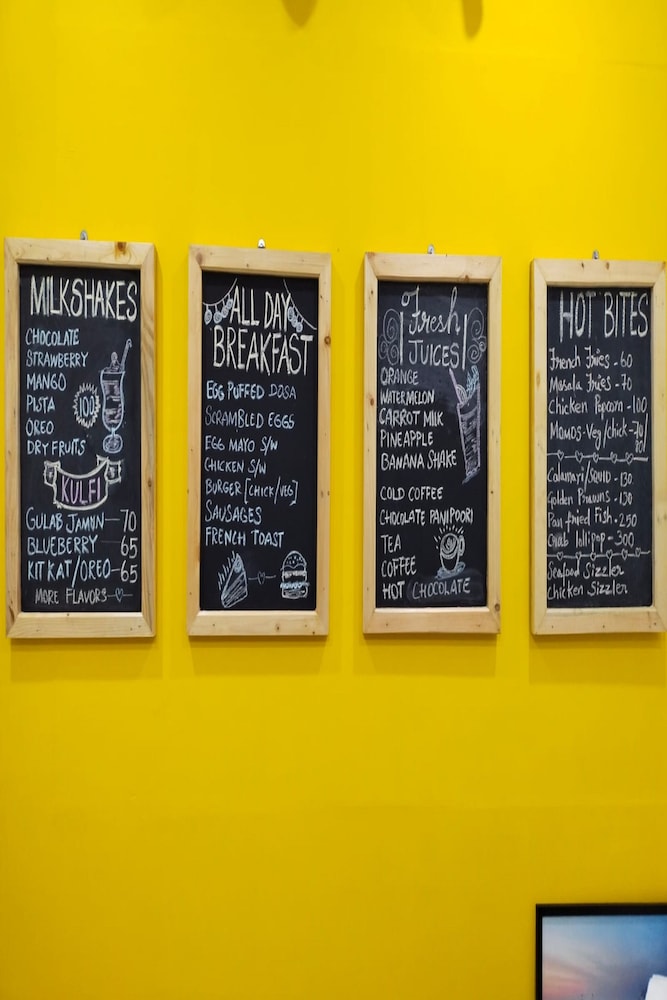 MILKSHAKES
CHOCOLATE
STRAWBERRY
MANGO
PISTA
OREO
DRY FRUITS
100
KULFI
GULAB JAMUN - 70
BLUEBERRY - 65
KITKAT/OREO - 65
MORE FLAVORS
ALL DAY
BREAKFAST
EGG PUFFED DOSA
SCRAMBLED EGGS
EGG MAYO S/W
CHICKEN S/W
BURGER [CHICK/VEG]
SAUSAGES
FRENCH TOAST
Fresh
JUICES
ORANGE
WATERMELON
CARROT MILK
PINEAPPLE
BANANA SHAKE
COLD COFFEE
CHOCOLATE PANIPOORI
TEA
COFFEE
HOT CHOCOLATE
HOT BITES
French Fries - 60
Masala Fries - 70
Chicken Popcorn - 100
Momos-Veg/chick - 70/
Calamari/SQUID - 130
Golden Prawns - 150
Pan fried Fish - 250
Crab lollipop - 300
Seafood Sizzler
Chicken Sizzler